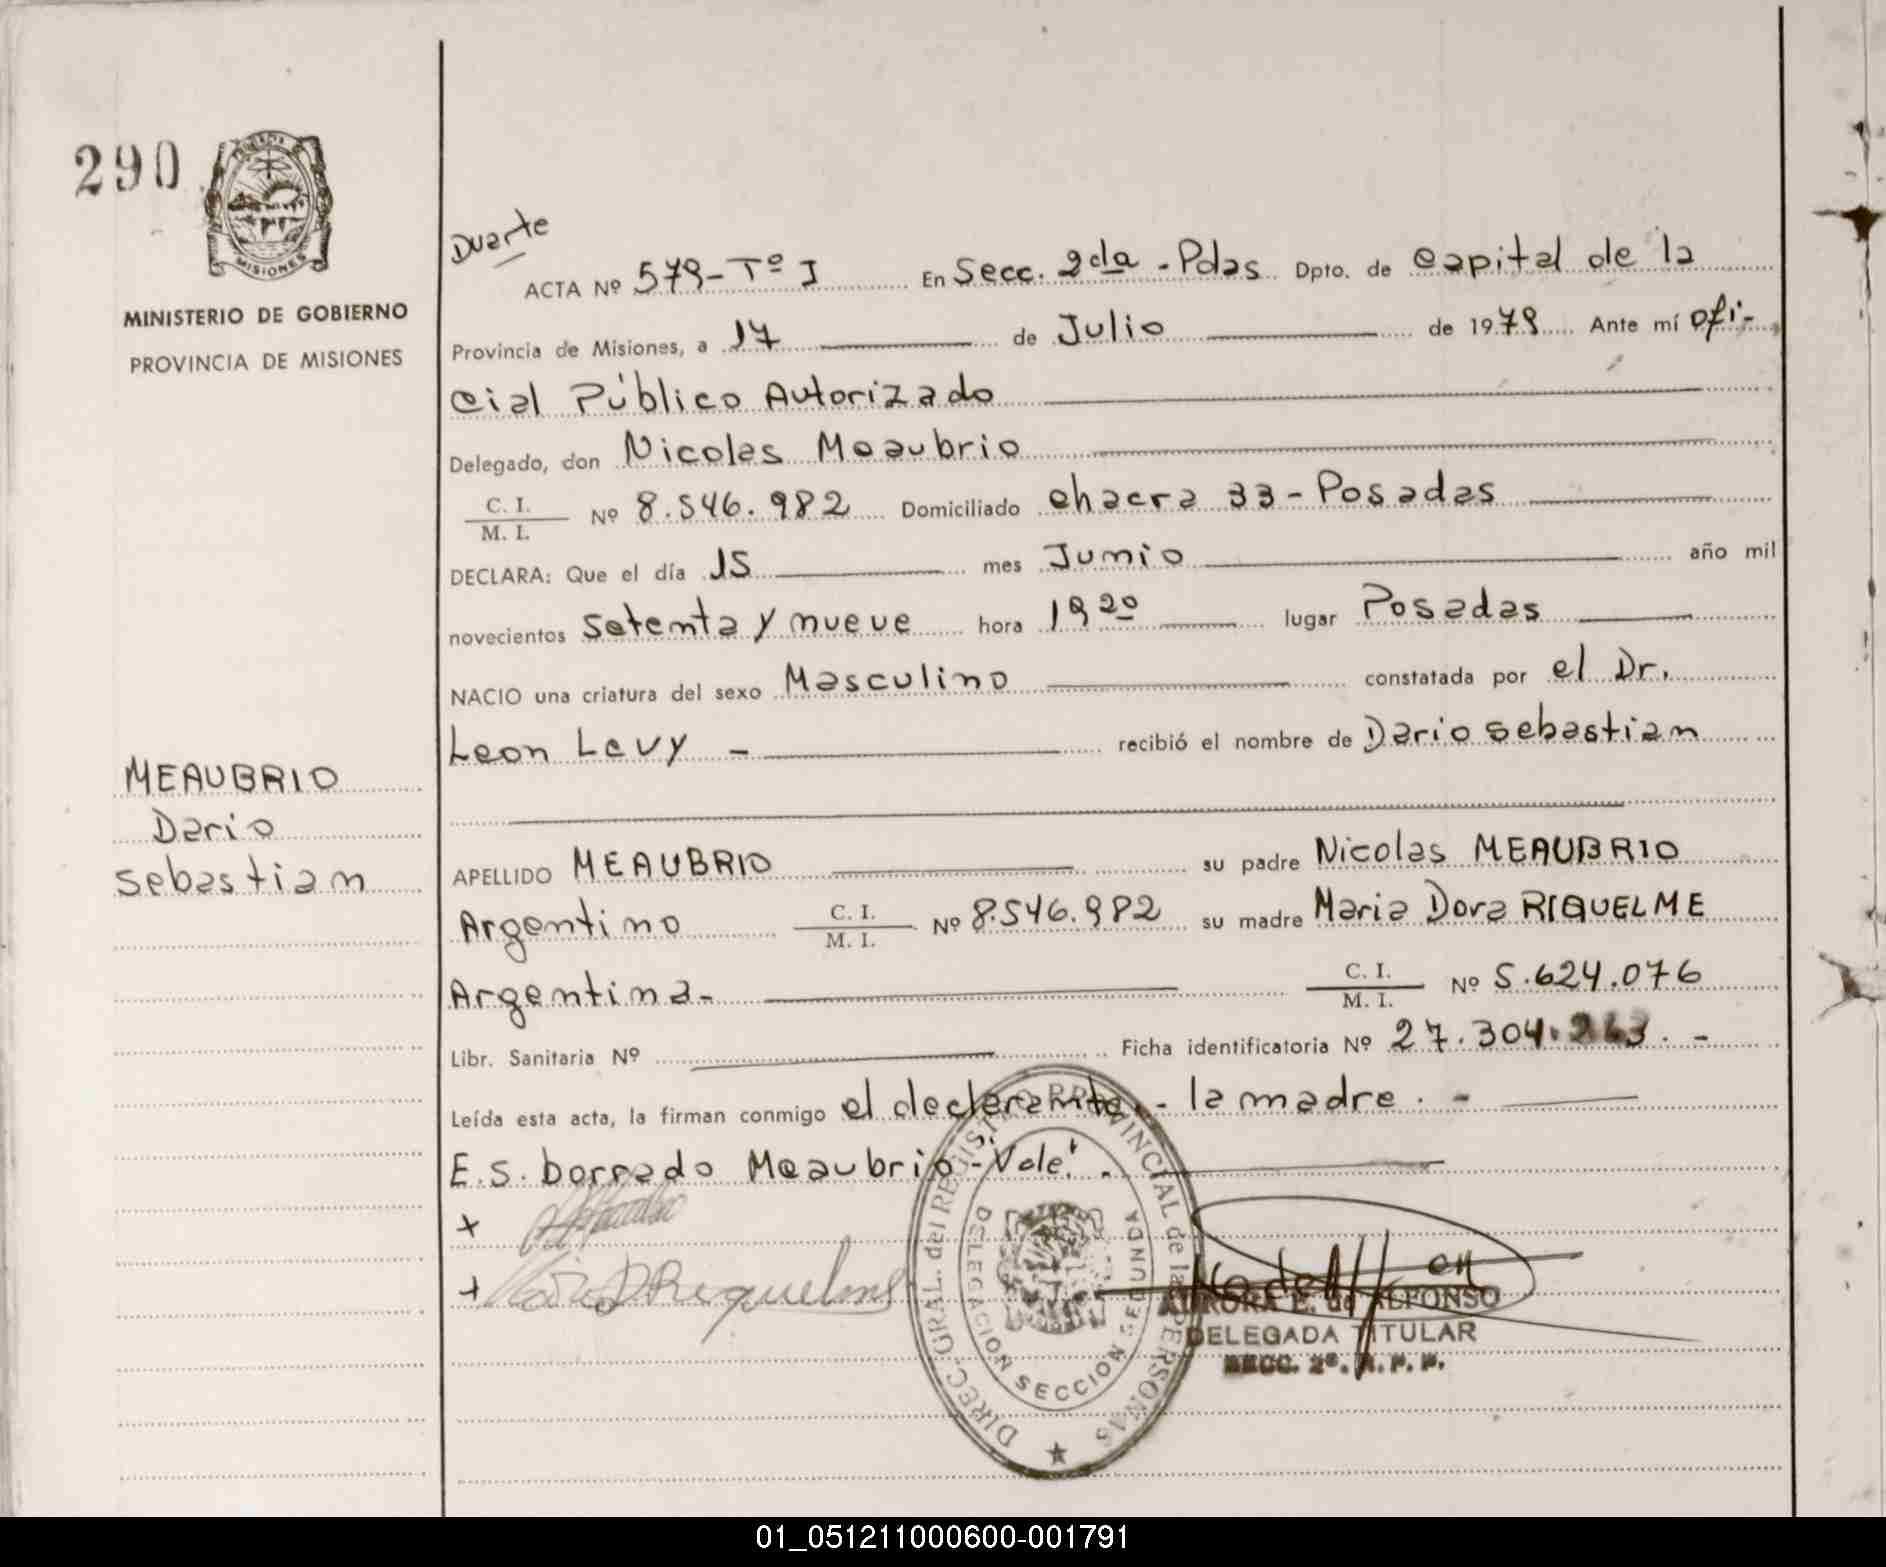 290
MISIONES
MINISTERIO DE GOBIERNO
PROVINCIA DE MISIONES
MEAUBRIO
Dario
Sebastian
Duarte
ACTA Nº 579-Tº I En Secc. 2da - Pdas Dpto. de Capital de la
Provincia de Misiones, a 17 de Julio de 1979 Ante mí Ofi-
cial Público Autorizado
Delegado, don Nicolas Meaubrio
C. I.
M. I. Nº 8.546.982 Domiciliado chacra 33 - Posadas
DECLARA: Que el día 15 mes Junio año mil
novecientos setenta y nueve hora 19 20 lugar Posadas
NACIO una criatura del sexo Masculino constatada por el Dr.
Leon Levy - recibió el nombre de Dario sebastian
APELLIDO MEAUBRIO su padre Nicolas MEAUBRIO
Argentino C. I. M. I. Nº 8.546.982 su madre Maria Dora RIQUELME
Argentina - C. I. M. I. Nº 5.624.076
Libr. Sanitaria Nº Ficha identificatoria Nº 27.304. -
Leída esta acta, la firman conmigo el declarante. - la madre. -
E.S. borrado Meaubrio - Vale! .
+
+ D Riquelme
DIREC. GRAL. del REGISTRO PROVINCIAL de las PERSONAS
DELEGACION SECCION SEGUNDA
AURORA E. de ALFONSO
DELEGADA TITULAR
SECC. 2ª. R. P. P.
01_051211000600-001791